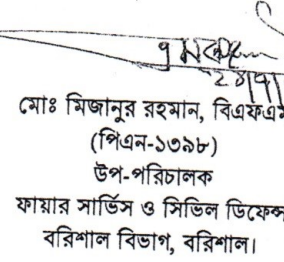 মোঃ মিজানুর রহমান, বিএফএম
(পিএন-১৩৯৮)
উপ-পরিচালক
ফায়ার সার্ভিস ও সিভিল ডিফেন্স
বরিশাল বিভাগ, বরিশাল।